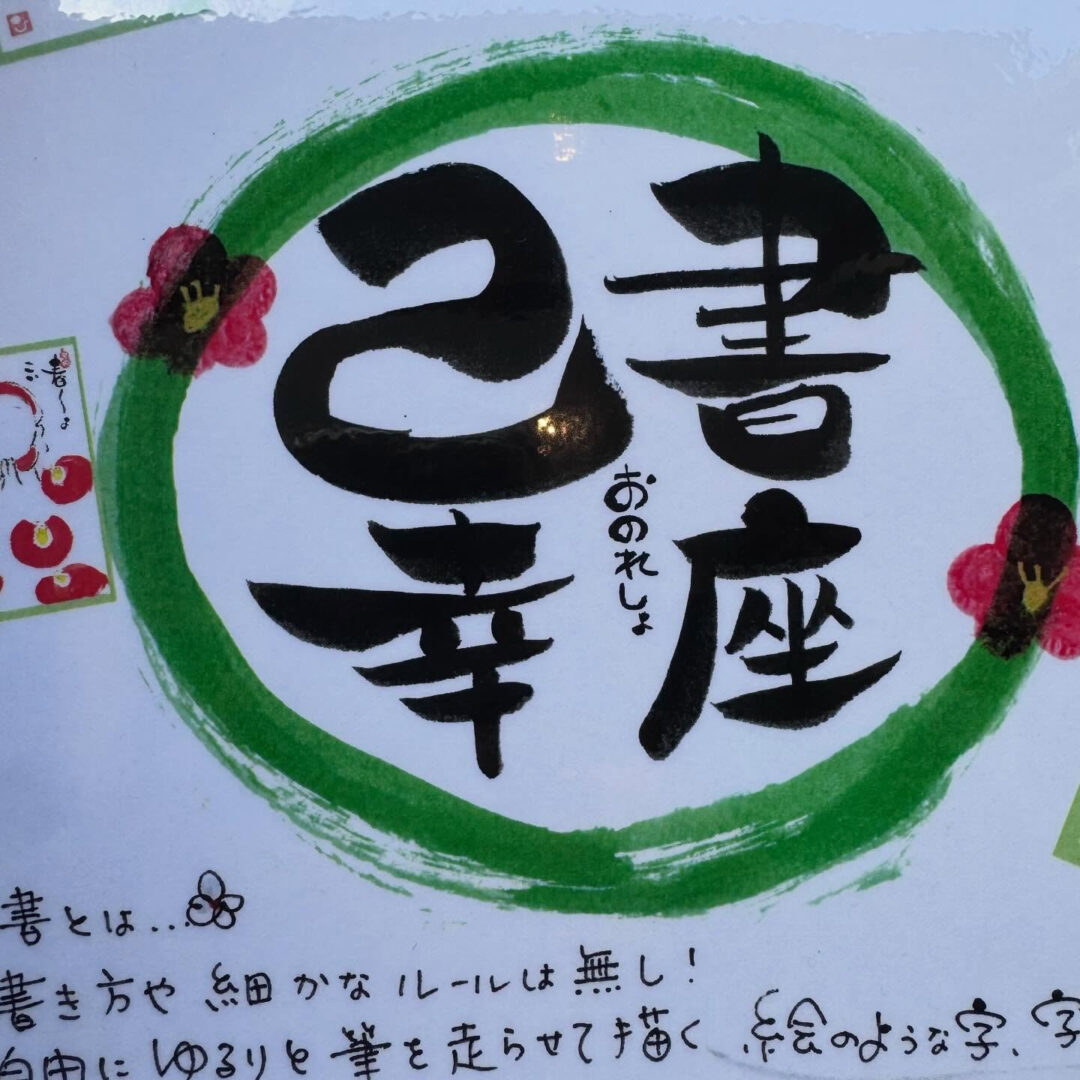 己書
おのれしょ
幸座
書とは…
書き方や細かなルールは無し!
自由にゆるりと筆を走らせて描く 絵のような字、字